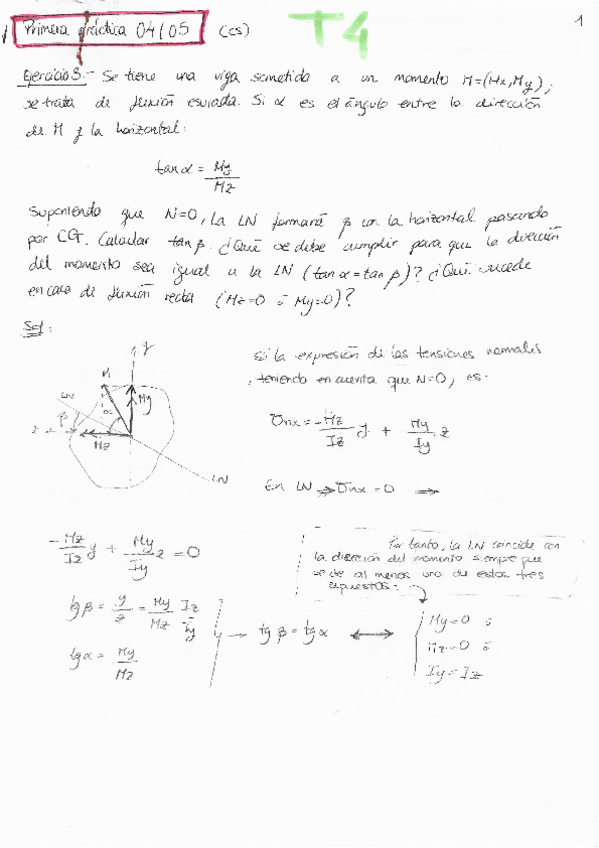 1
Primera práctica 04/05 (cs) T4
Ejercicio 3.- Se tiene una viga sometida a un momento M=(Mx,My),
se trata de flexión esviada. Si α es el ángulo entre la dirección
de M y la horizontal:
tan α = My/Mz
Suponiendo que N=0, la LN formará β con la horizontal pasando
por CG. Calcular tan β. ¿Qué se debe cumplir para que la dirección
del momento sea igual a la LN (tan α = tan β)? ¿Qué sucede
en caso de flexión recta (Mz=0 ó My=0)?
Sol:
y
M
LN
My
β
α
z
Mz
LN
Si la expresión de las tensiones normales
, teniendo en cuenta que N=0, es:
σnx = -Mz/Iz y + My/Iy z
En LN ⇒ σnx = 0 ⇒
-Mz/Iz y + My/Iy z = 0
tg β = y/z = My/Mz Iz/Iy
tg α = My/Mz
→ tg β = tg α ↔
Por tanto, la LN coincide con
la dirección del momento siempre que
se dé al menos uno de estos tres
supuestos:
My=0 ó
Mz=0 ó
Iy=Iz